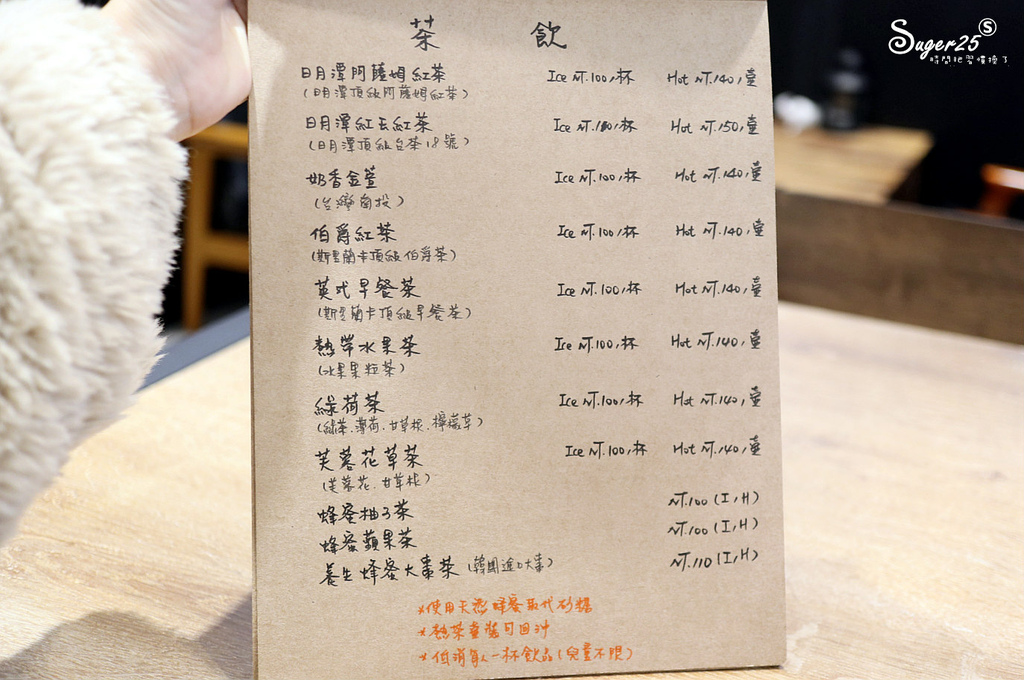 Suger25 S
時間把習慣換了
茶 飲
日月潭阿薩姆紅茶 Ice NT.100,杯 Hot NT.140,壺
(日月潭頂級阿薩姆紅茶)
日月潭紅玉紅茶 Ice NT. 杯 Hot NT.150,壺
(日月潭頂級台茶18號)
奶香金萱 Ice NT.100,杯 Hot NT.140,壺
(台灣南投)
伯爵紅茶 Ice NT.100,杯 Hot NT.140,壺
(斯里蘭卡頂級伯爵茶)
英式早餐茶 Ice NT.100,杯 Hot NT.140,壺
(斯里蘭卡頂級早餐茶)
熱帶水果茶 Ice NT.100,杯 Hot NT.140,壺
(水果果粒茶)
綠荷茶 Ice NT.100,杯 Hot NT.140,壺
(綠茶.薄荷.甘草根.檸檬草)
芙蓉花草茶 Ice NT.100,杯 Hot NT.140,壺
(芙蓉花.甘草根)
蜂蜜柚子茶 NT.100(I,H)
蜂蜜蘋果茶 NT.100(I,H)
養生蜂蜜大棗茶(韓國進口大棗) NT.110(I,H)
*使用天然蜂蜜取代砂糖
*熱茶壺裝可回沖
*低消每人一杯飲品(兒童不限)